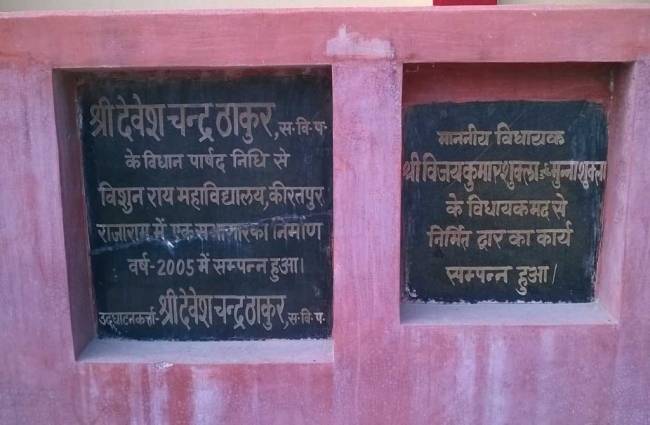 श्री देवेश चन्द्र ठाकुर, स॰ वि॰ प॰
के विधान पार्षद निधि से
विशुन राय महाविद्यालय, कीरतपुर
राजाराम में एक सभागार का निमाण
वर्ष-2005 में सम्पन्न हुआ।
उद्घाटनकर्त्ता- श्री देवेश चन्द्र ठाकुर, स॰ वि॰ प॰
माननीय विधायक
श्री विजय कुमार शुक्ला उर्फ मुन्ना शुक्ला
के विधायक मद से
निर्मित द्वार का कार्य
सम्पन्न हुआ।